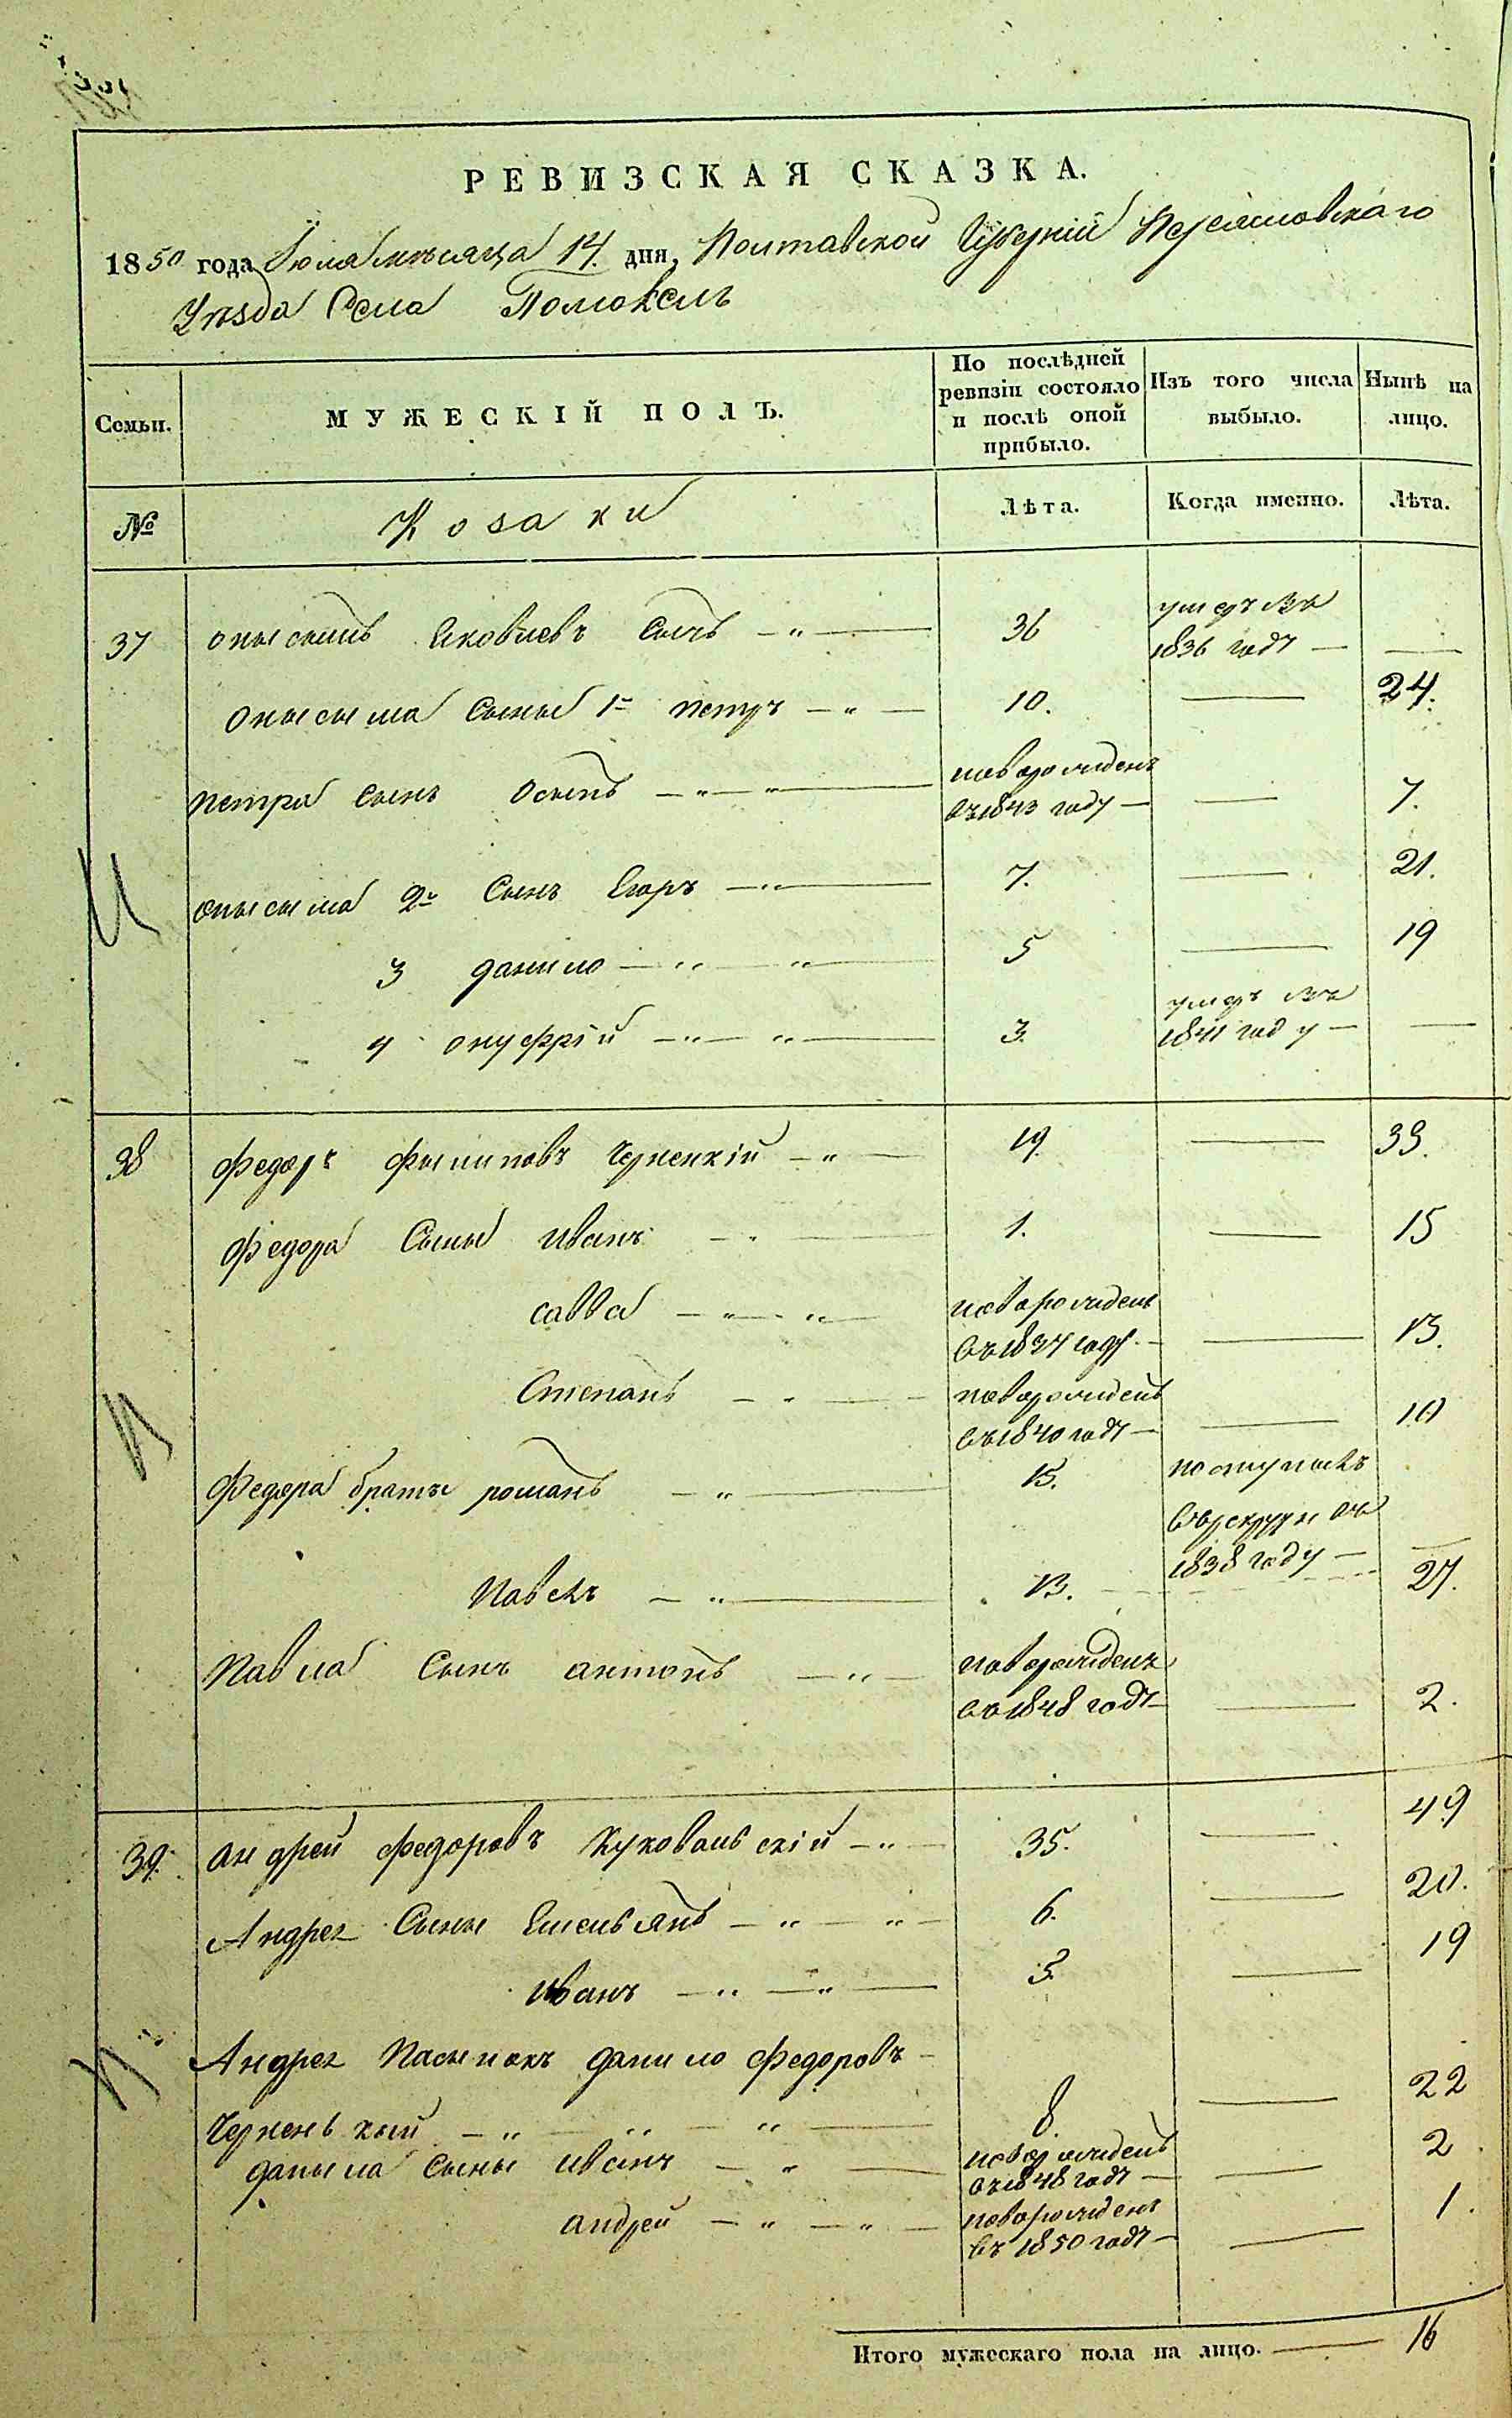 РЕВИЗСКАЯ СКАЗКА.
1850 года Іюля мѣсяца 14. дня, Полтавской Губерніи Переясловскаго
Уѣзда Села Помоклъ
Семьи.
МУЖЕСКІЙ ПОЛЪ.
По послѣдней ревизіи состояло и послѣ оной прибыло.
Изъ того числа выбыло.
Нынѣ на лицо.
№
Козаки
Лѣта.
Когда именно.
Лѣта.
37 Онысымъ Яковлевъ Сычъ — 36 умеръ въ
1836 году — —
Онысыма сыны 1й петръ — 10. — 24.
петра сынъ Осыпъ — новорожденъ
въ 1843 году — — 7.
Онысыма 2й Сынъ Егоръ — 7. — 21.
3 данило — 5 — 19
4 онуфрій — 3. умеръ въ
1841 году — —
38 Федоръ Филиповъ Черненкій — 19. — 33.
Федора Сыны иванъ — 1. — 15
савва — новорожденъ
въ 1837 году — — 13.
Степанъ — новорожденъ
въ 1840 году — — 10
Федора братъя романъ — 15. поступилъ
въ рекруты въ
1838 году — —
Павелъ — 13. — 27.
Павла Сынъ антонъ — новорожденъ
въ 1848 году — — 2.
39. андрей Федоровъ Куковальскій — 35. — 49
Андрея Сыны Емельянъ — 6. — 20.
иванъ — 5. — 19
Андрея Пасынокъ данило Федоровъ —
Черненькый — 8. — 22
даныла сыны иванъ — новорожденъ
въ 1848 году — — 2.
андрей — новорожденъ
въ 1850 году — — 1.
Итого мужескаго пола на лицо. — 16